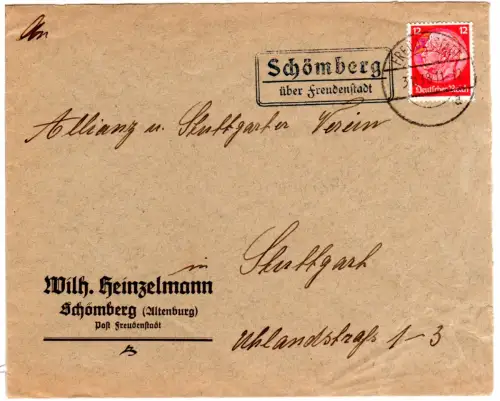 An
12 12
Schömberg
über Freudenstadt
Deutsches Reich
Allianz u. Stuttgarter Verein
in Stuttgart
Uhlandstraße 1-3
Wilh. Heinzelmann
Schömberg (Altenburg)
Post Freudenstadt